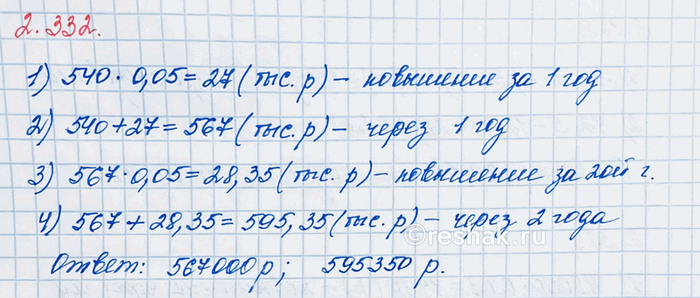 2.332.
1) 540 · 0,05 = 27 (тыс. р) – повышение за 1 год
2) 540 + 27 = 567 (тыс. р) – через 1 год
3) 567 · 0,05 = 28,35 (тыс. р) – повышение за 2ой г.
4) 567 + 28,35 = 595,35 (тыс. р) – через 2 года
©reshak.ru
Ответ: 567000 р; 595350 р.